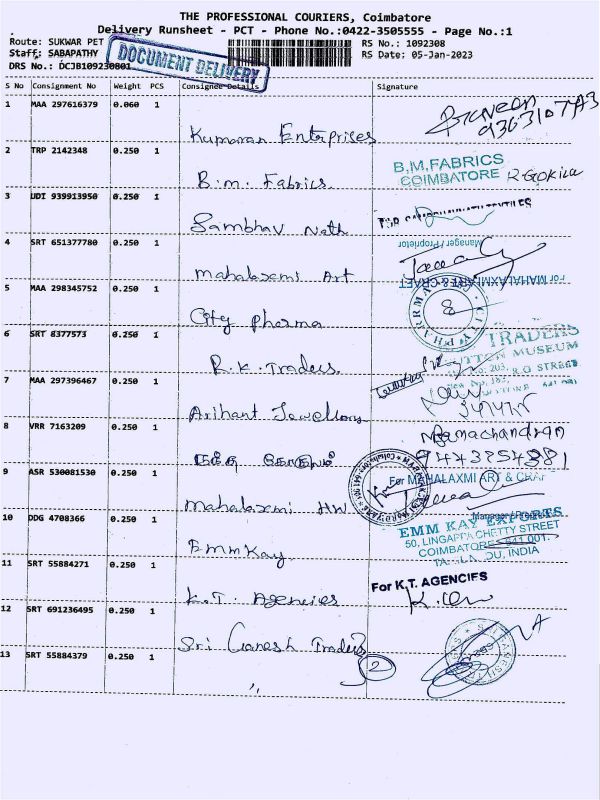 THE PROFESSIONAL COURIERS, Coimbatore
Delivery Runsheet - PCT - Phone No.:0422-3505555 - Page No.:1
Route: SUKWAR PET
RS No.: 1092308
Staff: SABAPATHY
RS Date: 05-Jan-2023
DRS No.: DCJB109230801
DOCUMENT DELIVERY
S No Consignment No Weight PCS Consignee Details Signature
1 MAA 297616379 0.060 1 Kumaran Enterprises
2 TRP 2142348 0.250 1 B.m. Fabrics B.M.FABRICS
COIMBATORE R-GOKILA
3 UDI 939913950 0.250 1 Sambhav Nath
Manager/Proprietor
4 SRT 651377780 0.250 1 mahalaxmi Art
For MAHALAXMI ART & CRAFT
5 MAA 298345752 0.250 1 City pharma
6 SRT 8377573 0.250 1 R.K. Traders TRADERS
BUTTON MUSEUM
7 MAA 297396467 0.250 1 Arihant Jewellers
8 VRR 7163209 0.250 1 Ramachandran
9 ASR 530081530 0.250 1 mahalaxmi HW
For MAHALAXMI ART & CRAFT
10 DDG 4708366 0.250 1 Emm Kay EMM KAY EXPORTS
50, LINGAPPA CHETTY STREET
COIMBATORE - 641 001.
INDIA
11 SRT 55884271 0.250 1 K.T. Agencies
For K.T. AGENCIES
12 SRT 691236495 0.250 1 Sri Ganesh Traders
13 SRT 55884379 0.250 1 ,, 2